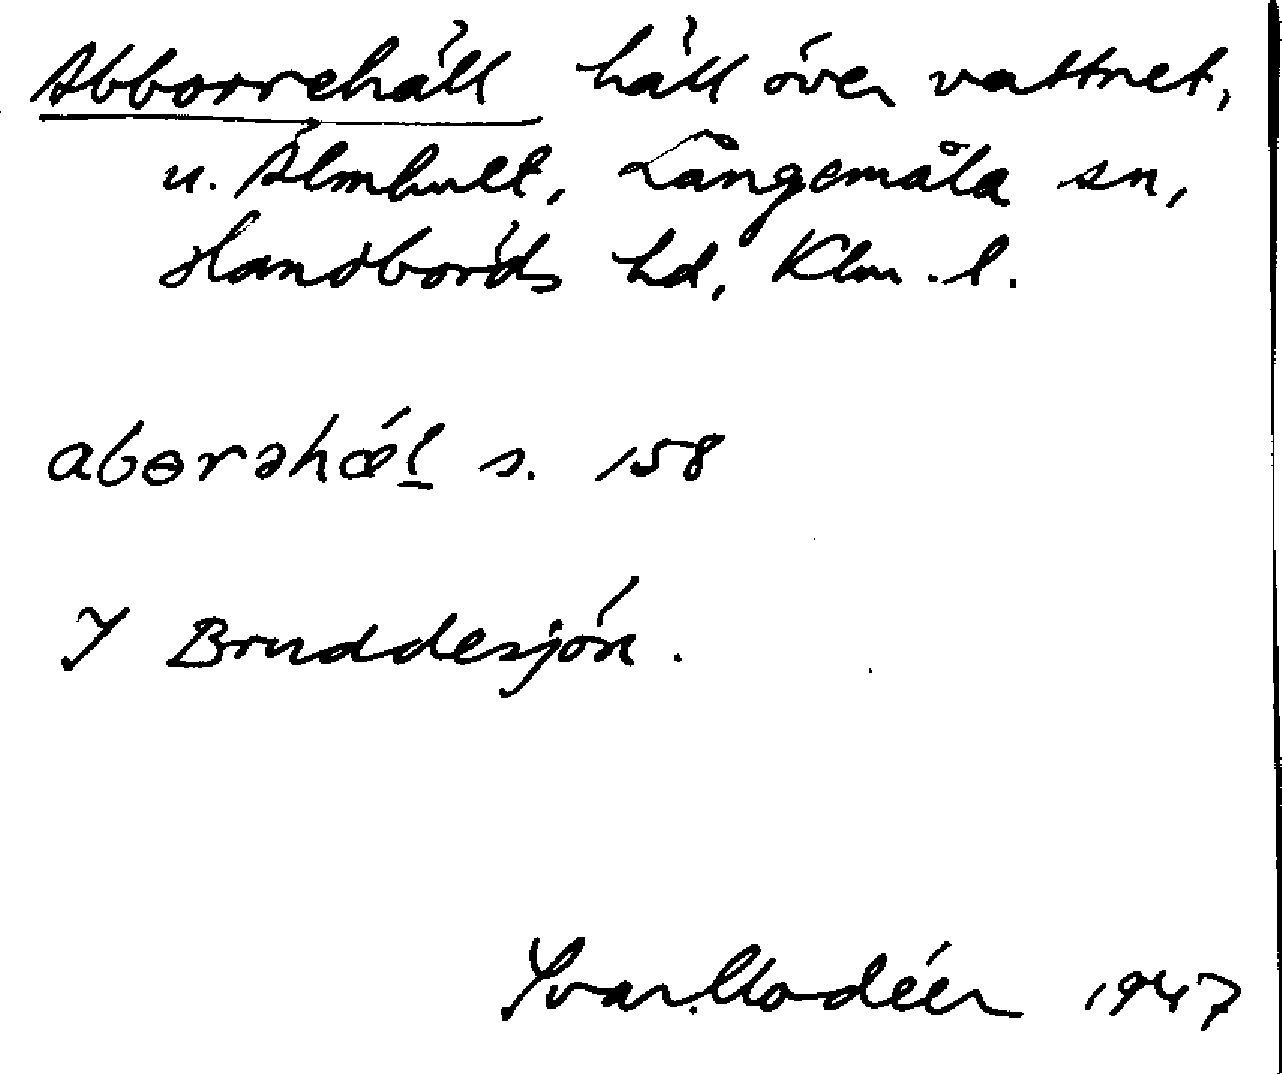 Abborrehäll häll över vattnet,
u. Älmhult, Långemåla sn,
Handbörds hd, Klm. l.
abɵrəhǽl s. 158
I Bruddesjön.
Ivar Modéer 1947